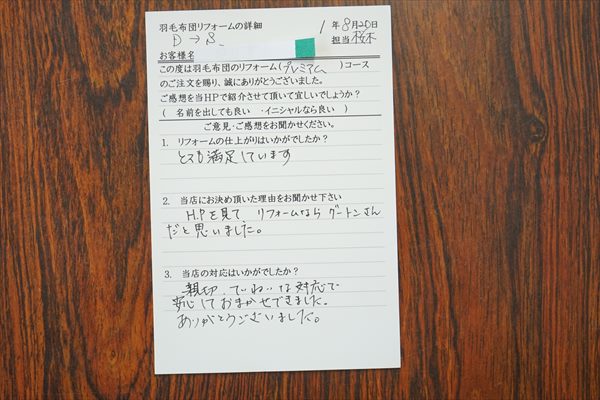 羽毛布団リフォームの詳細
1年8月20日
D→S
担当 桜木
お客様名
この度は羽毛布団のリフォーム(プレミアム)コース
のご注文を賜り、誠にありがとうございました。
ご感想を当HPで紹介させて頂いて宜しいでしょうか?
( 名前を出しても良い ・イニシャルなら良い )
ご意見・ご感想をお聞かせください。
1. リフォームの仕上がりはいかがでしたか?
とても満足しています
2. 当店にお決め頂いた理由をお聞かせ下さい
H.Pを見て リフォームなら グートンさん
だと思いました。
3. 当店の対応はいかがでしたか?
親切、ていねいな対応で
安心しておまかせできました。
ありがとうございました。